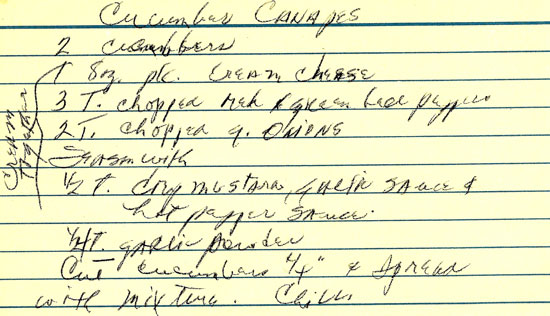 Cucumber Canapes
2 cucumbers
1 8oz. pk. Cream cheese
3 T. chopped red & green bell pepper
2 T. chopped g. onions
Cream Together
Season with
1/2 t. dry mustard, sauce &
hot pepper sauce.
1/4 t. garlic powder
Cut cucumbers 1/4" & spread
with mixture. Chill